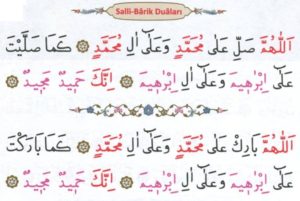 Salli-Bârik Duâları
اَللّٰهُمَّ صَلِّ عَلٰى مُحَمَّدٍ وَعَلٰٓى اٰلِ مُحَمَّدٍ ۞ كَمَا صَلَّيْتَ
عَلٰٓى اِبْرٰهِيمَ وَعَلٰٓى اٰلِ اِبْرٰهِيمَ ۞ اِنَّكَ حَمِيدٌ مَجِيدٌ ۞
اَللّٰهُمَّ بَارِكْ عَلٰى مُحَمَّدٍ وَعَلٰٓى اٰلِ مُحَمَّدٍ ۞ كَمَا بَارَكْتَ
عَلٰٓى اِبْرٰهِيمَ وَعَلٰٓى اٰلِ اِبْرٰهِيمَ ۞ اِنَّكَ حَمِيدٌ مَجِيدٌ ۞